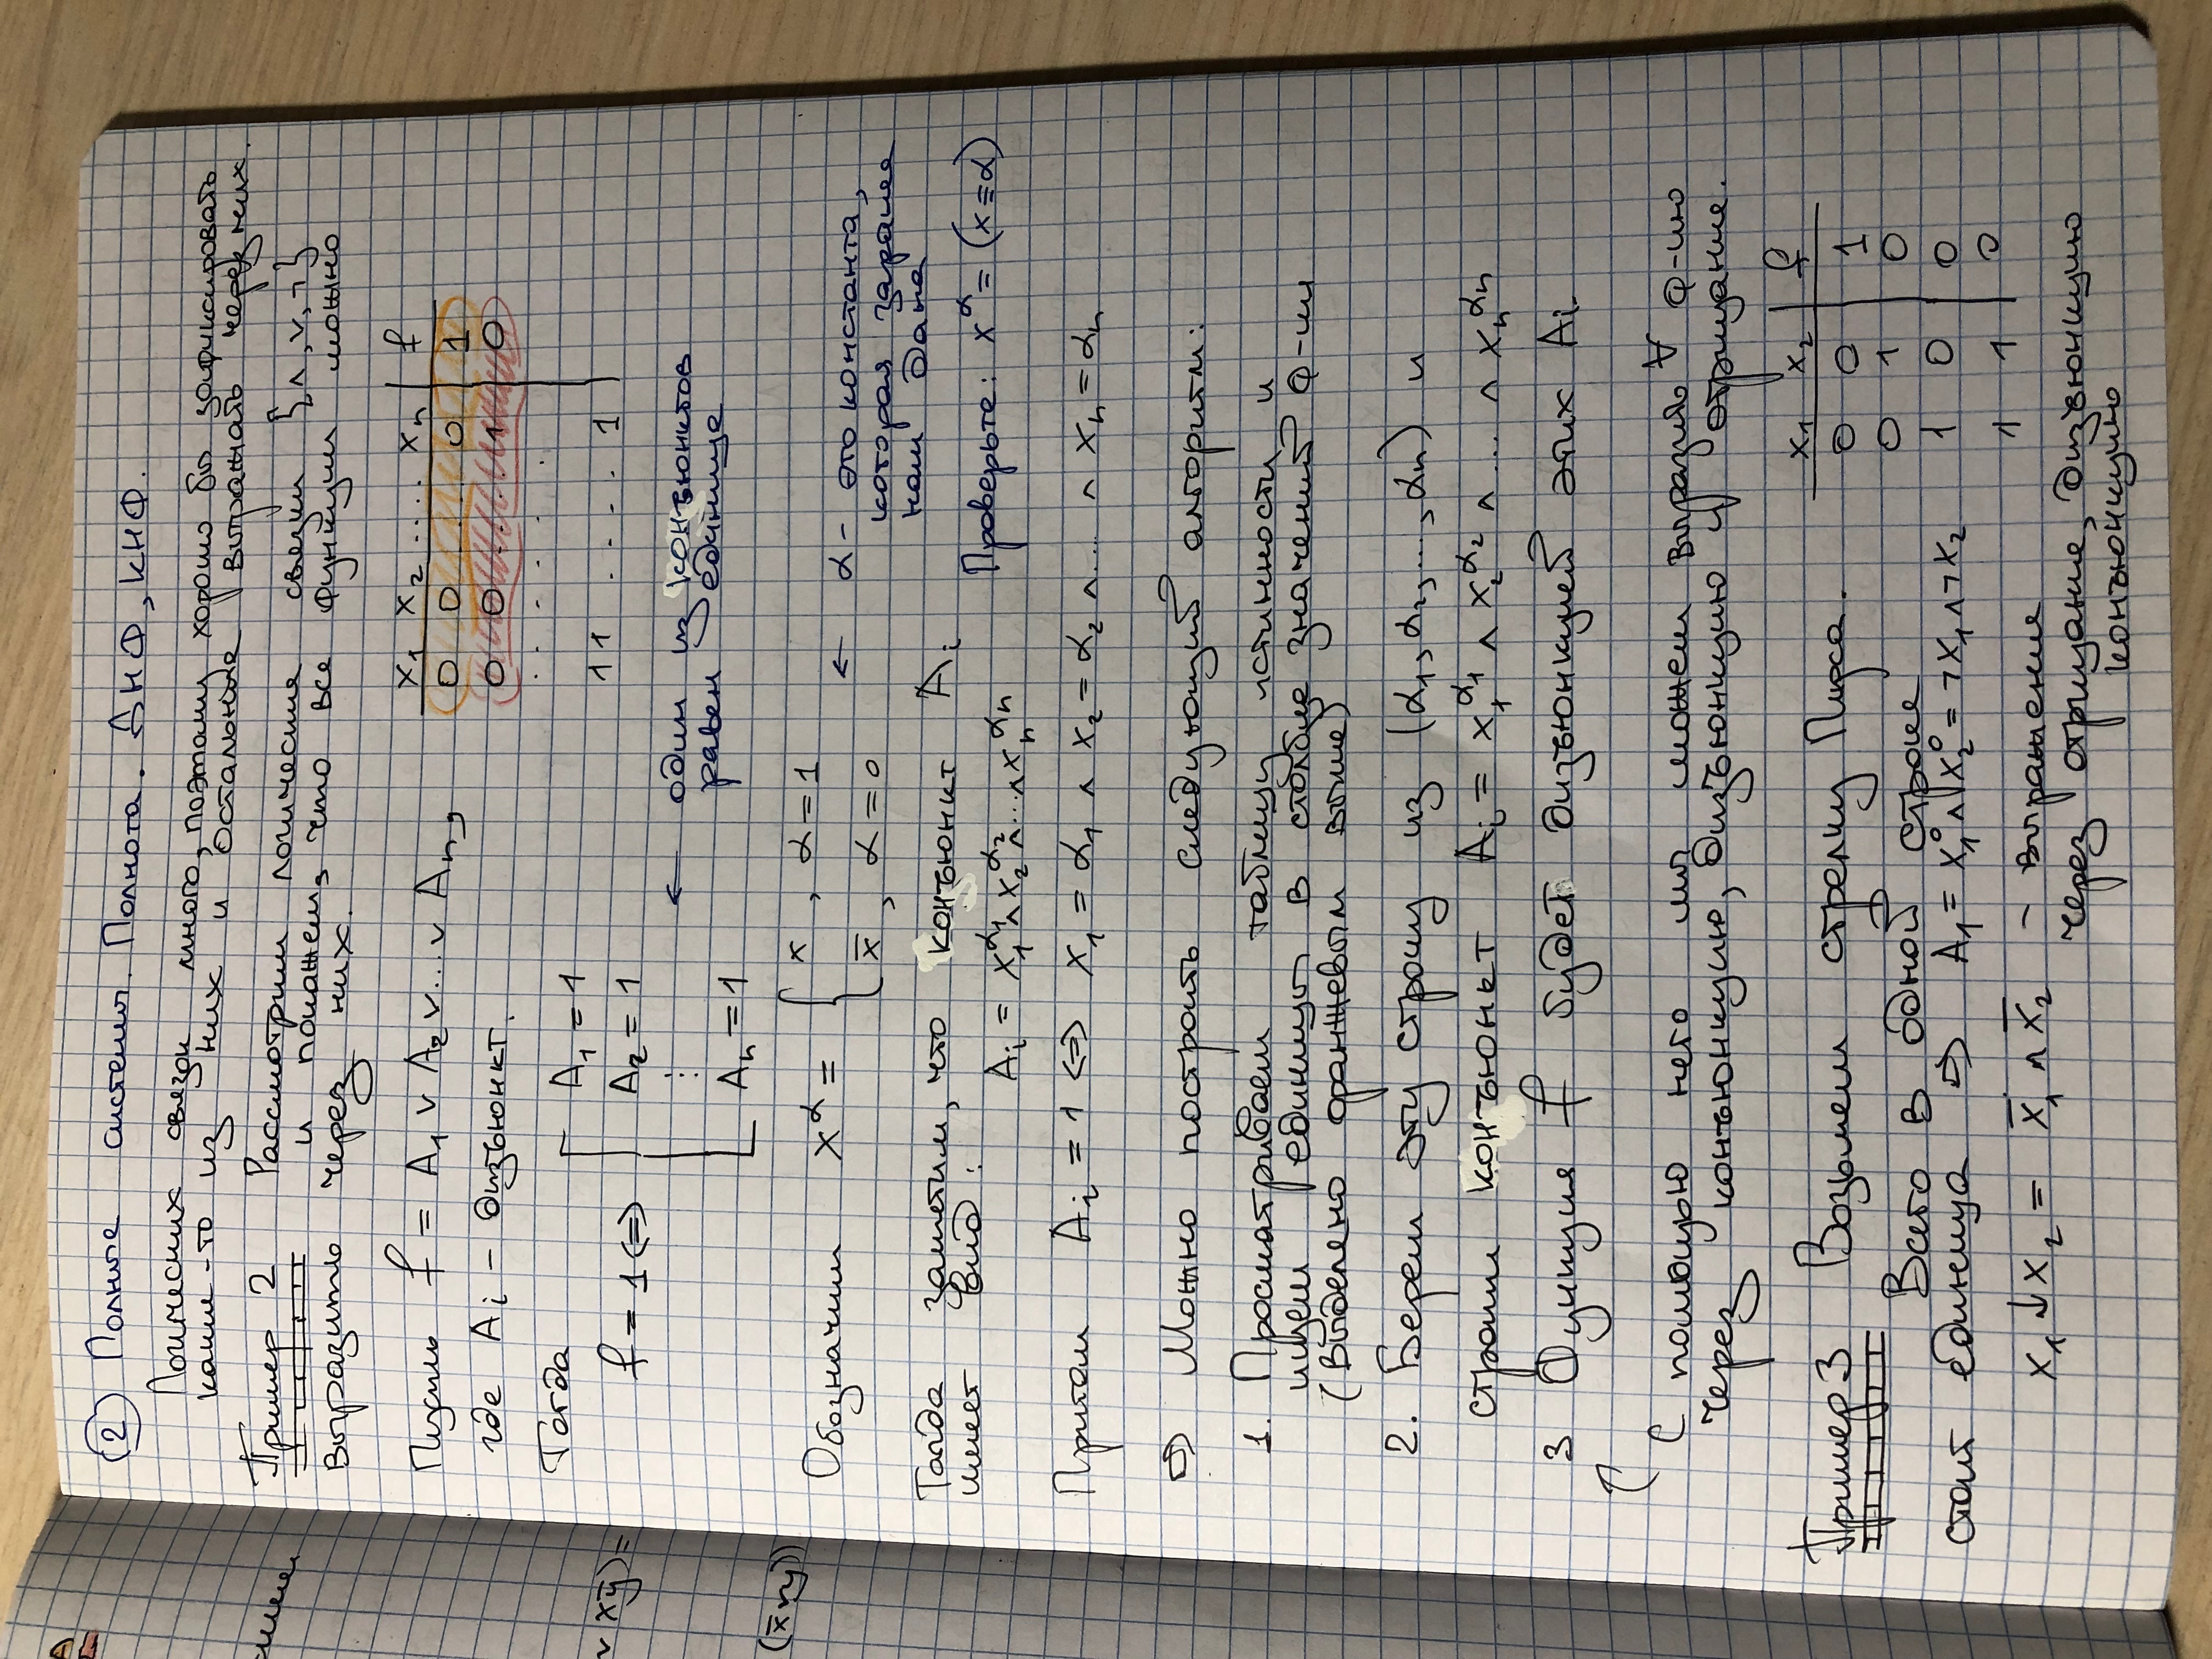 ② Полные системы. Полнота. ДНФ, КНФ.
Логических связок много, поэтому хорошо бы зафиксировать
какие-то из них и остальные выражать через них.
Пример 2 Рассмотрим логические связки {∧, ∨, ¬}
и покажем, что все функции можно
выразить через них.
Пусть f = A₁ ∨ A₂ ∨ ... ∨ Aₙ,
где Aᵢ – дизъюнкт.
x₁ x₂ .... xₙ | f
0 0 ... 0 | 1
0 0 .... 1 | 0
. . . . . .
1 1 . . . . 1 |
Тогда
f = 1 ⇔ [ A₁ = 1
A₂ = 1
⋮
Aₙ = 1
← один из конъюнктов
равен единице
Обозначим x^α = { x , α = 1
x̄ , α = 0
← α – это константа,
которая заранее
нам дана
Тогда заметим, что конъюнкт Aᵢ
имеет вид:
Aᵢ = x₁^α₁ ∧ x₂^α₂ ∧ ... ∧ xₙ^αₙ
Проверьте: x^α = (x ≡ α)
Притом Aᵢ = 1 ⇔ x₁ = α₁ ∧ x₂ = α₂ ∧ ... ∧ xₙ = αₙ
⇒ Можно построить следующий алгоритм:
1. Просматриваем таблицу истинности и
ищем единицы в столбце значений ф-ии
(выделено оранжевым выше)
2. Берем эту строку из (α₁, α₂, ..., αₙ) и
строим конъюнкт Aᵢ = x₁^α₁ ∧ x₂^α₂ ∧ ... ∧ xₙ^αₙ
3 Функция f будет дизъюнкцией этих Aᵢ.
С помощью него мы можем выразить ∀ ф-ию
через конъюнкцию, дизъюнкцию и отрицание.
Пример 3 Возьмем стрелку Пирса.
Всего в одной строке
стоит единица ⇒ A₁ = x₁⁰ ∧ x₂⁰ = ¬x₁ ∧ ¬x₂
x₁ x₂ | f
0 0 | 1
0 1 | 0
1 0 | 0
1 1 | 0
x₁ ↓ x₂ = x̄₁ ∧ x̄₂ – выражение
через отрицание, дизъюнкцию
конъюнкцию
∨ xȳ) =
(x̄ ∨ y))